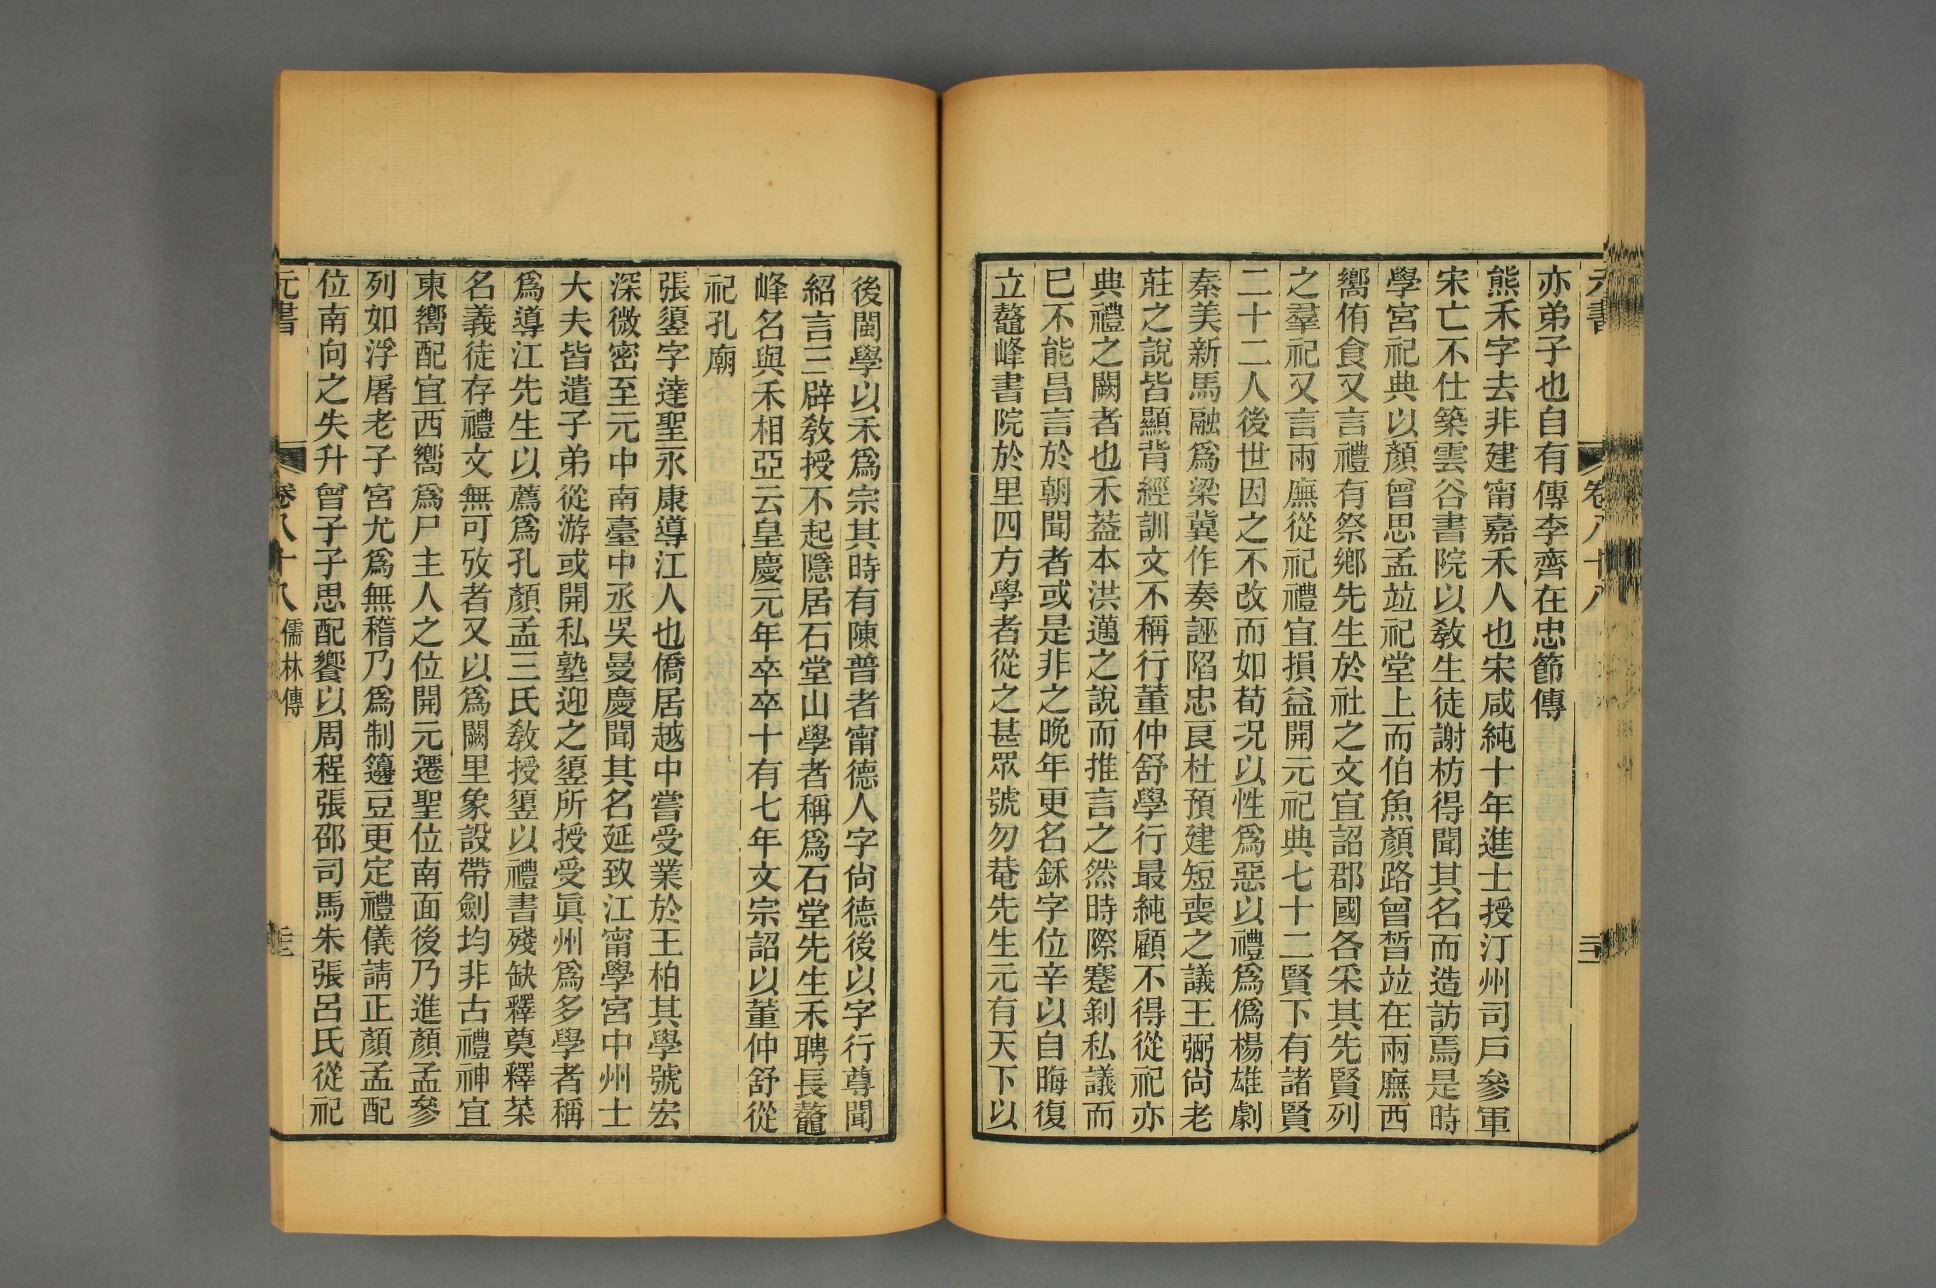 元書 卷八十八
亦弟子也自有傳李齊在忠節傳
熊禾字去非建甯嘉禾人也宋咸純十年進士授汀州司戶參軍
宋亡不仕築雲谷書院以敎生徒謝枋得聞其名而造訪焉是時
學宮祀典以顏曾思孟竝祀堂上而伯魚顏路曾晳竝在兩廡西
嚮侑食又言禮有祭鄉先生於社之文宜詔郡國各采其先賢列
之羣祀又言兩廡從祀禮宜損益開元祀典七十二賢下有諸賢
二十二人後世因之不改而如荀况以性爲惡以禮爲僞楊雄劇
秦美新馬融爲梁冀作奏誣陷忠良杜預建短喪之議王弼尙老
莊之說皆顯背經訓文不稱行董仲舒學行最純顧不得從祀亦
典禮之闕者也禾葢本洪邁之說而推言之然時際蹇剝私議而
巳不能昌言於朝聞者或是非之晚年更名鉌字位辛以自晦復
立鼇峰書院於里四方學者從之甚眾號勿菴先生元有天下以
後閩學以禾爲宗其時有陳普者甯德人字尙德後以字行尊聞
紹言三辟敎授不起隱居石堂山學者稱爲石堂先生禾聘長鼇
峰名與禾相亞云皇慶元年卒卒十有七年文宗詔以董仲舒從
祀孔廟
張䇓字達聖永康導江人也僑居越中嘗受業於王柏其學號宏
深微密至元中南臺中丞吳曼慶聞其名延致江甯學宮中州士
大夫皆遣子弟從游或開私塾迎之䇓所授受眞州爲多學者稱
爲導江先生以薦爲孔顏孟三氏敎授䇓以禮書殘缺釋奠釋菜
名義徒存禮文無可攷者又以爲闕里象設帶劍均非古禮神宜
東嚮配宜西嚮爲尸主人之位開元遷聖位南面後乃進顏孟參
列如浮屠老子宮尤爲無稽乃爲制籩豆更定禮儀請正顏孟配
位南向之失升曾子子思配饗以周程張邵司馬朱張呂氏從祀
元書 卷八十八 儒林傳